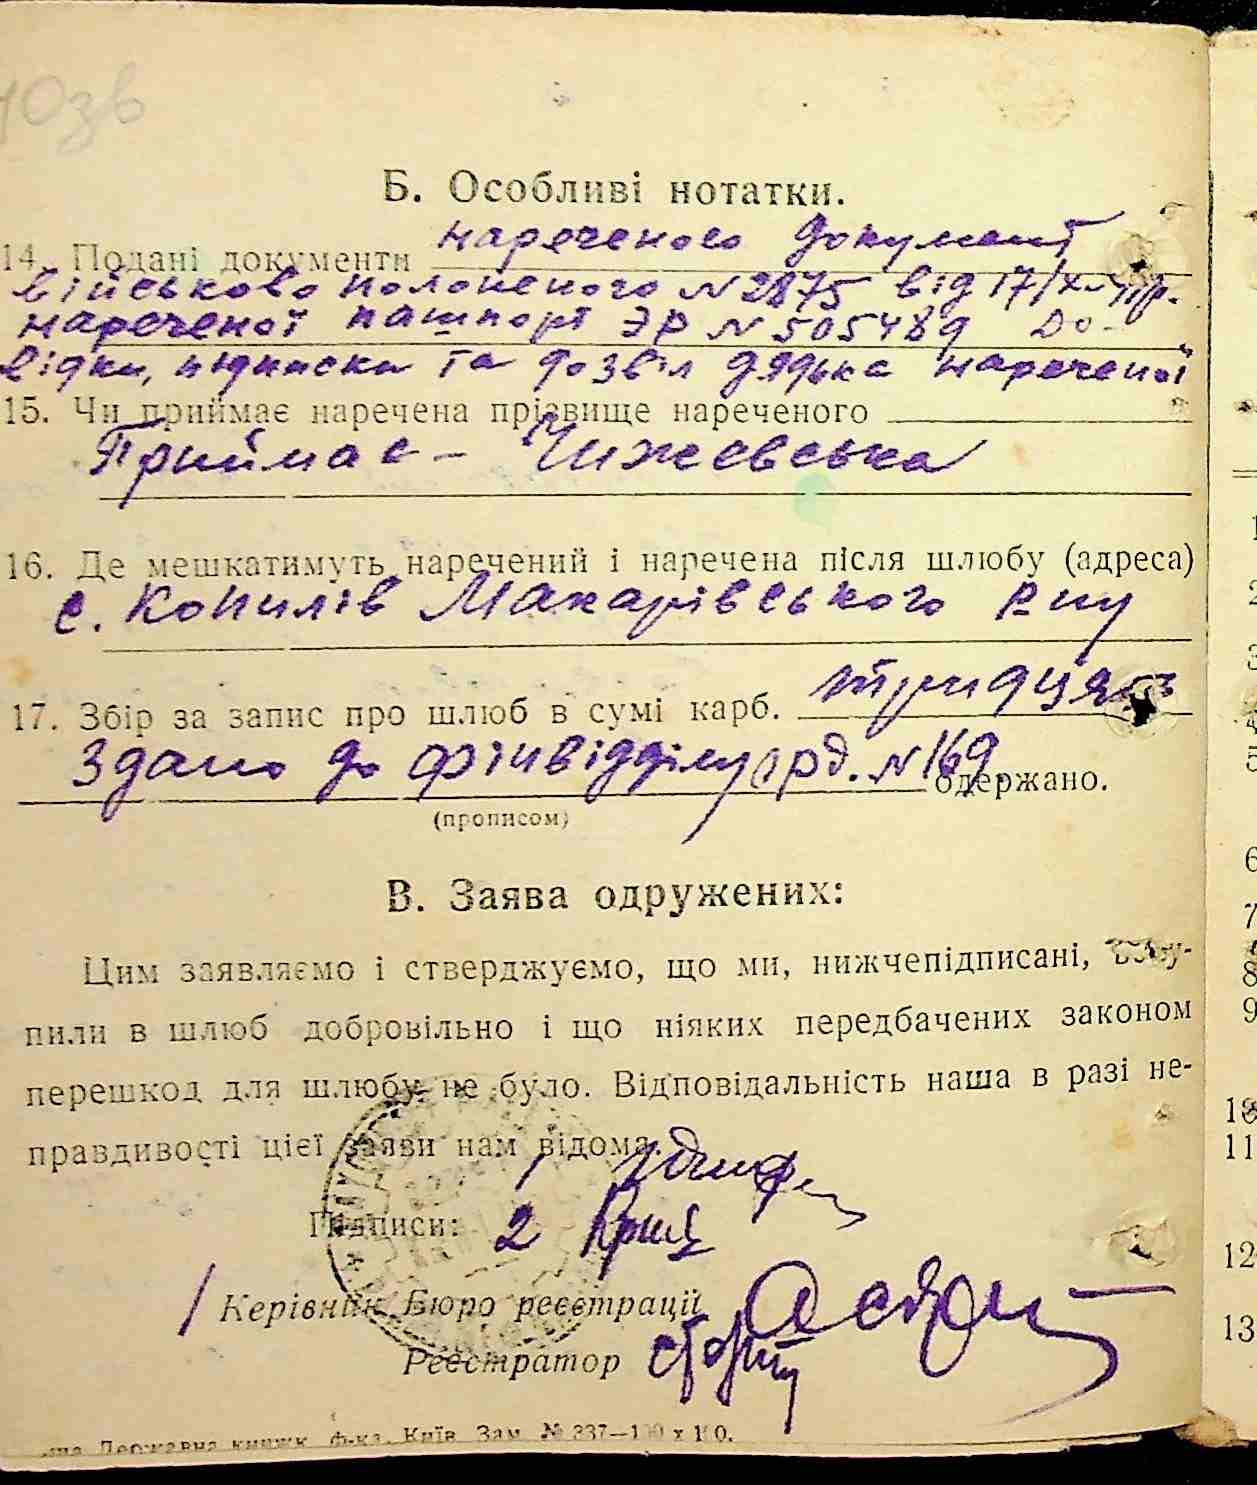 Б. Особливі нотатки.
14. Подані документи нареченого документ
військово полоненого № 2875 від 17/X-
нареченої пашпорт ЭР № 505489 до-
відки, підписки та дозвіл дядька нареченої
15. Чи приймає наречена прізвище нареченого
Приймає - Чижевська
16. Де мешкатимуть наречений і наречена після шлюбу (адреса)
с. Копилів Макарівського р-ну
17. Збір за запис про шлюб в сумі карб. тридцять
Здано до фінвідділу орд. № 169 одержано.
(прописом)
В. Заява одружених:
Цим заявляємо і стверджуємо, що ми, нижчепідписані, всту-
пили в шлюб добровільно і що ніяких передбачених законом
перешкод для шлюбу не було. Відповідальність наша в разі не-
правдивості цієї заяви нам відома.
1
Підписи: 2
Керівник Бюро реєстрації
Реєстратор
Державна книжк. ф-ка. Київ. Зам. № 337—100 х 100.
1
2
3
4
5
6
7
8
9
10
11
12
13